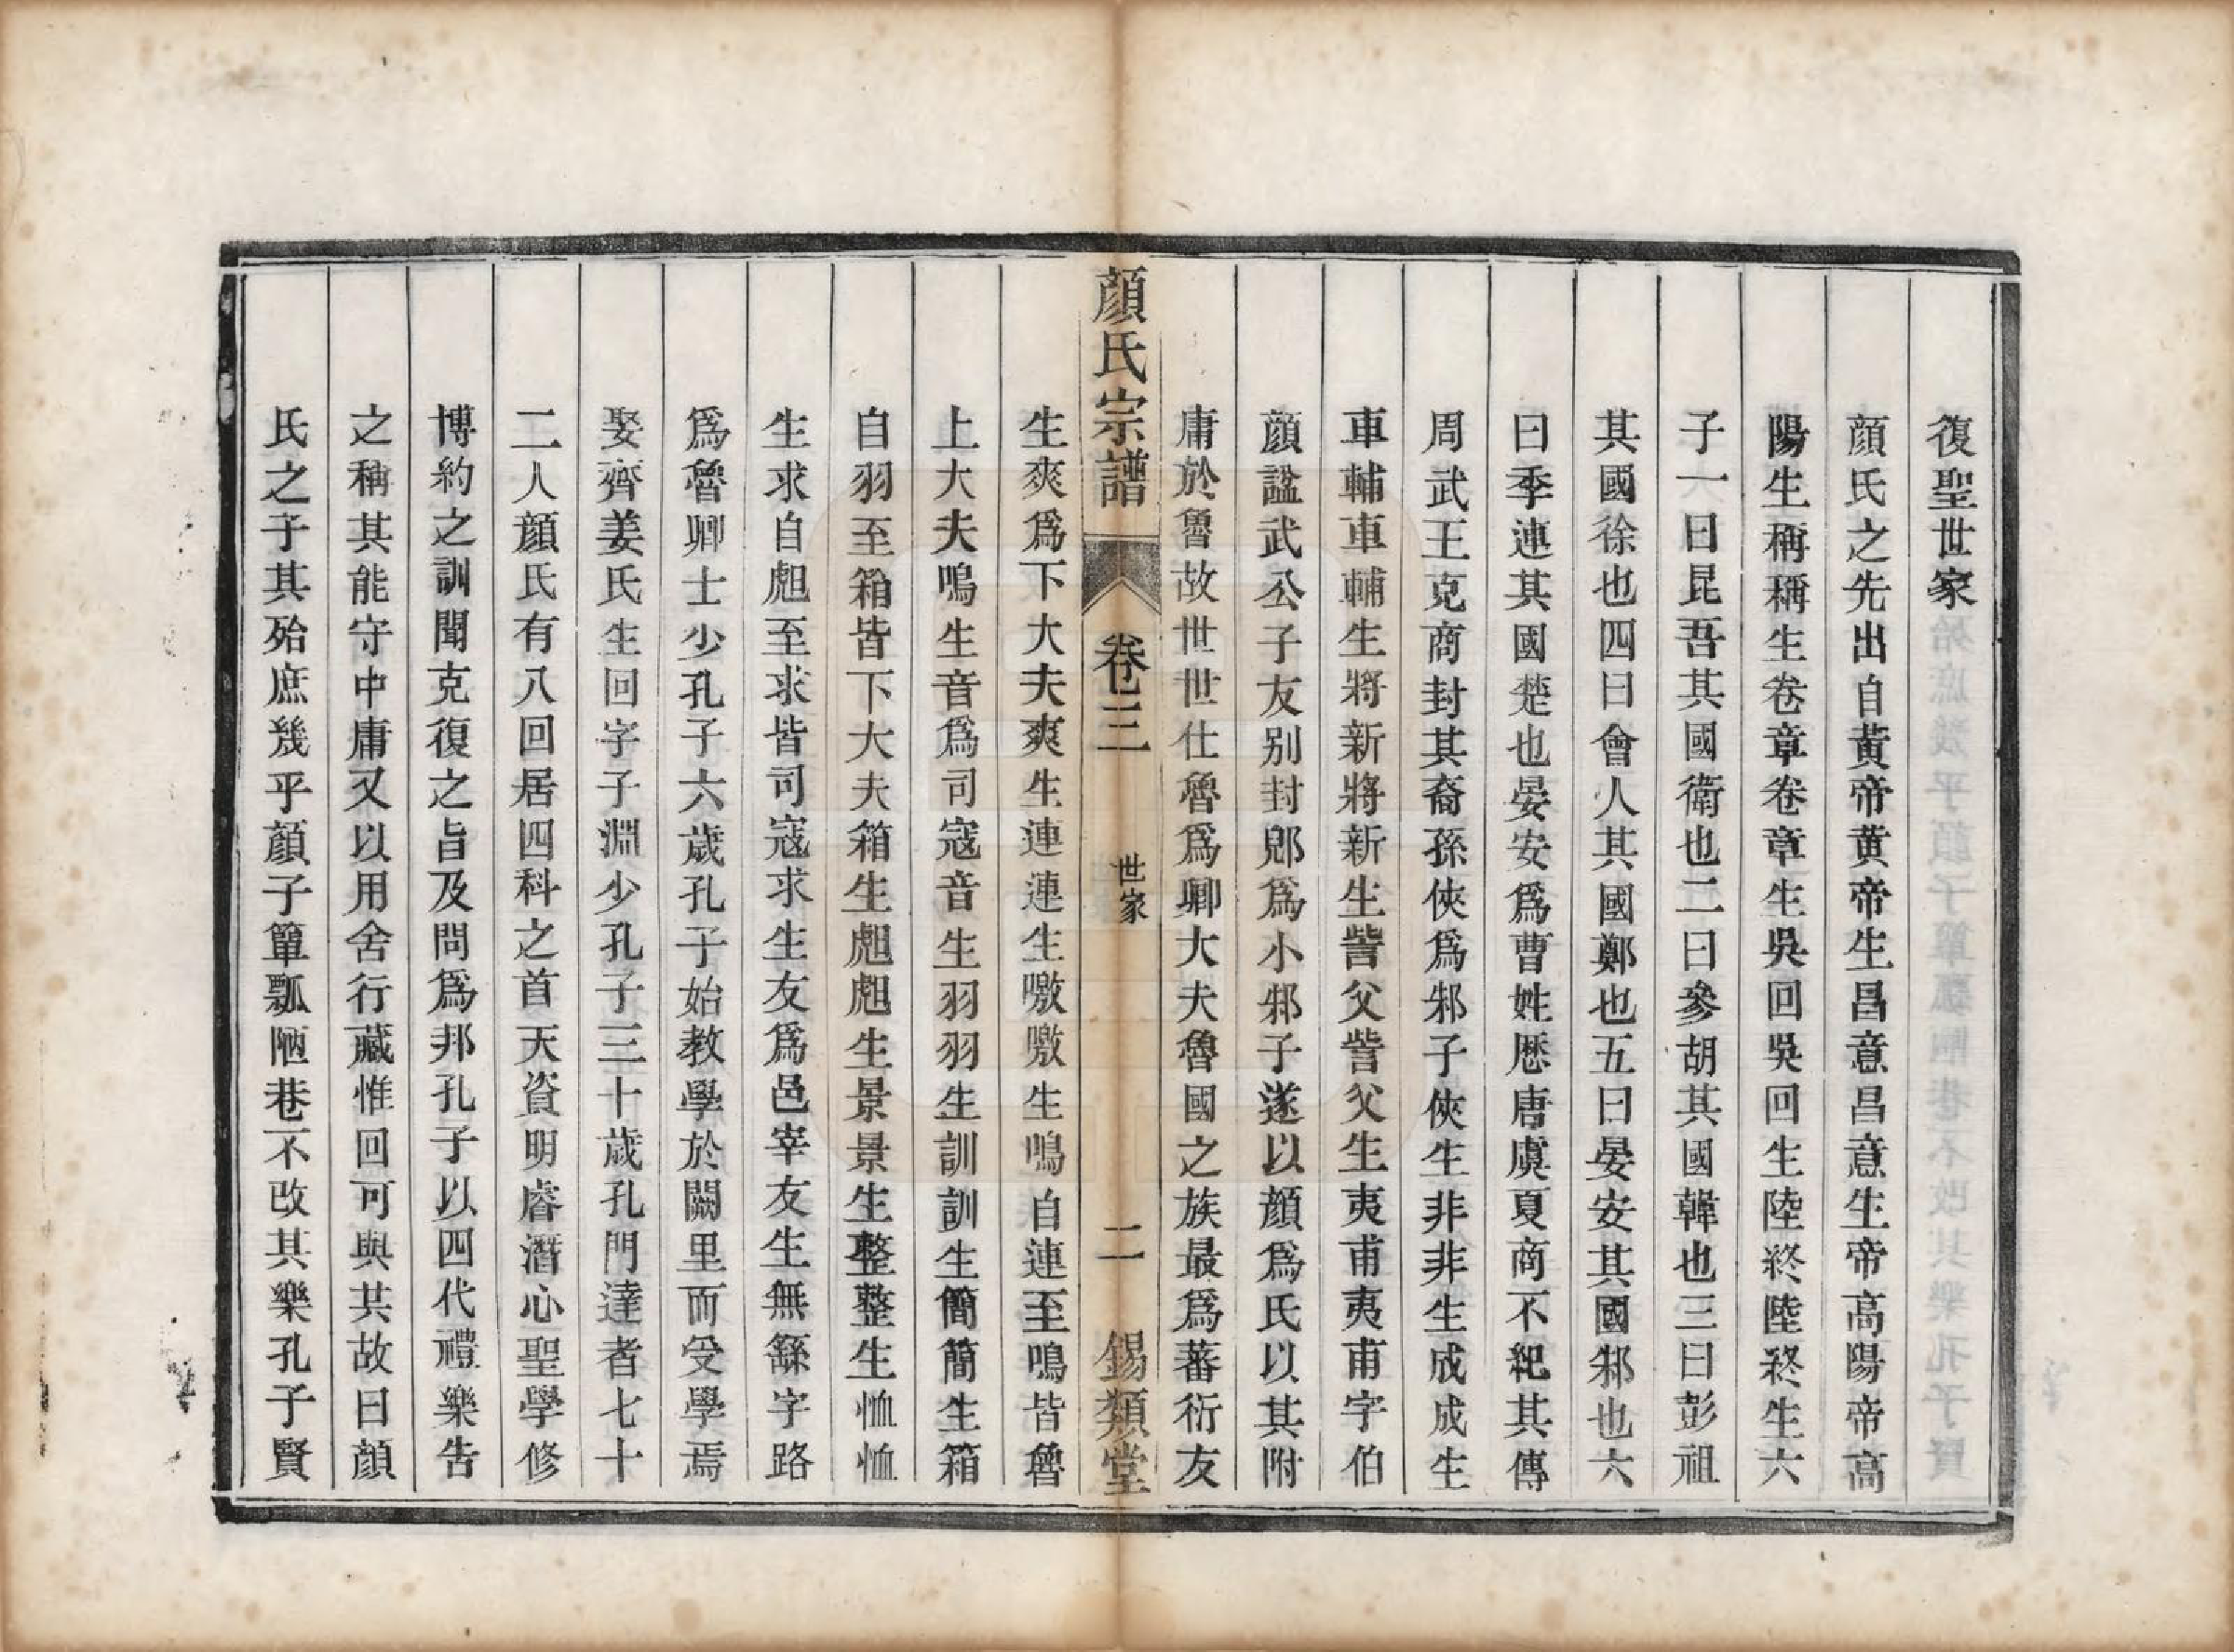 復聖世家
顏氏之先出自黃帝黃帝生昌意昌意生帝高陽帝高
陽生稱稱生卷章卷章生吳回吳回生陸終陸終生六
子一曰昆吾其國衛也二曰參胡其國韓也三曰彭祖
其國徐也四曰會人其國鄭也五曰晏安其國邾也六
曰季連其國楚也晏安爲曹姓歷唐虞夏商不紀其傳
周武王克商封其裔孫俠爲邾子俠生非非生成成生
車輔車輔生將新將新生訾父訾父生夷甫夷甫字伯
顏諡武公子友別封郳爲小邾子遂以顏爲氏以其附
庸於魯故世世仕魯爲卿大夫魯國之族最爲蕃衍友
顏氏宗譜 卷三 世家 二 錫類堂
生爽爲下大夫爽生連連生噭噭生鳴自連至鳴皆魯
上大夫鳴生音爲司寇音生羽羽生訓訓生簡簡生箱
自羽至箱皆下大夫箱生虺虺生景景生整整生恤恤
生求自虺至求皆司寇求生友爲邑宰友生無繇字路
爲魯卿士少孔子六歲孔子始教學於闕里而受學焉
娶齊姜氏生回字子淵少孔子三十歲孔門達者七十
二人顏氏有八回居四科之首天資明睿潛心聖學修
博約之訓聞克復之旨及問爲邦孔子以四代禮樂告
之稱其能守中庸又以用舍行藏惟回可與共故曰顏
氏之子其殆庶幾乎顏子簞瓢陋巷不改其樂孔子賢